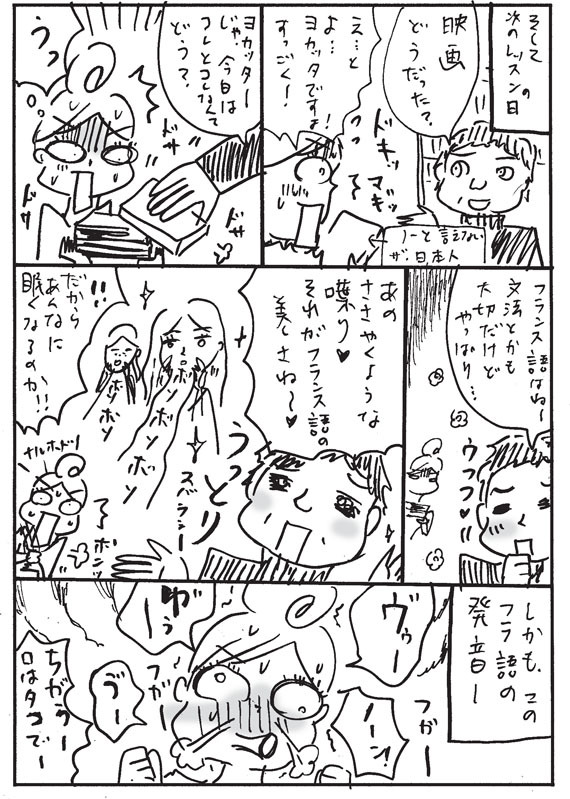 そして
次のレッスンの日
映画
どうだった？
ドキッ
マギッ
え…と
よ…
ヨカッタですよ！
すっごく〜！
ノーと言えない
ザ・日本人
ヨカッター
じゃ、今日は
コレとコレなんて
どう？
ドサッ
ドサ
ドサ
うっ
フランス語はね〜
文法とかも
大切だけど
やっぱり…
ウフフ♥
あの
ささやくような
喋り♥
それがフランス語の
美しさね〜♥
うっとり
スバラシー
ボソ
ボソ
ボソ
ボソ
ボソ
だから
あんなに
眠くなるのか!!
ナルホドッ
ポンッ
しかも、この
フラ語の
発音ー
ヴゥー
ゆぅー
フガー
フガー
ノーン！
ゔー
ちがうー
口はタコでー